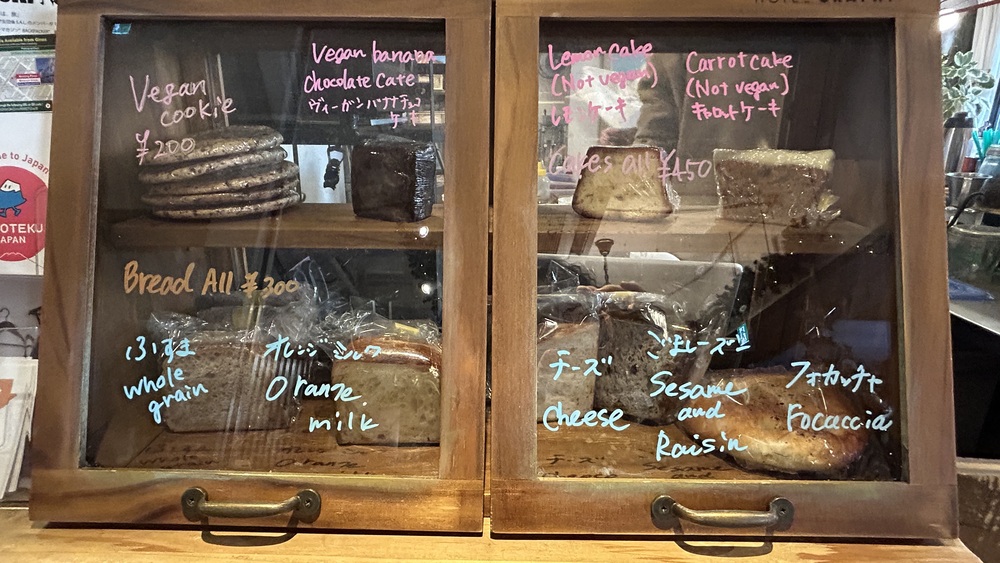 Vegan
cookie
¥200
Vegan banana
chocolate cate
ヴィーガンバナナチョコ
ケーキ
Lemon cake
(Not vegan)
レモンケーキ
Carrot cake
(Not vegan)
キャロットケーキ
Cakes all ¥450
Bread All ¥300
ふすま
whole
grain
オレンジミルク
Orange
milk
チーズ
Cheese
ごまレーズン
Sesame
and
Raisin
フォカッチャ
Focaccia
to Japan
JAPAN